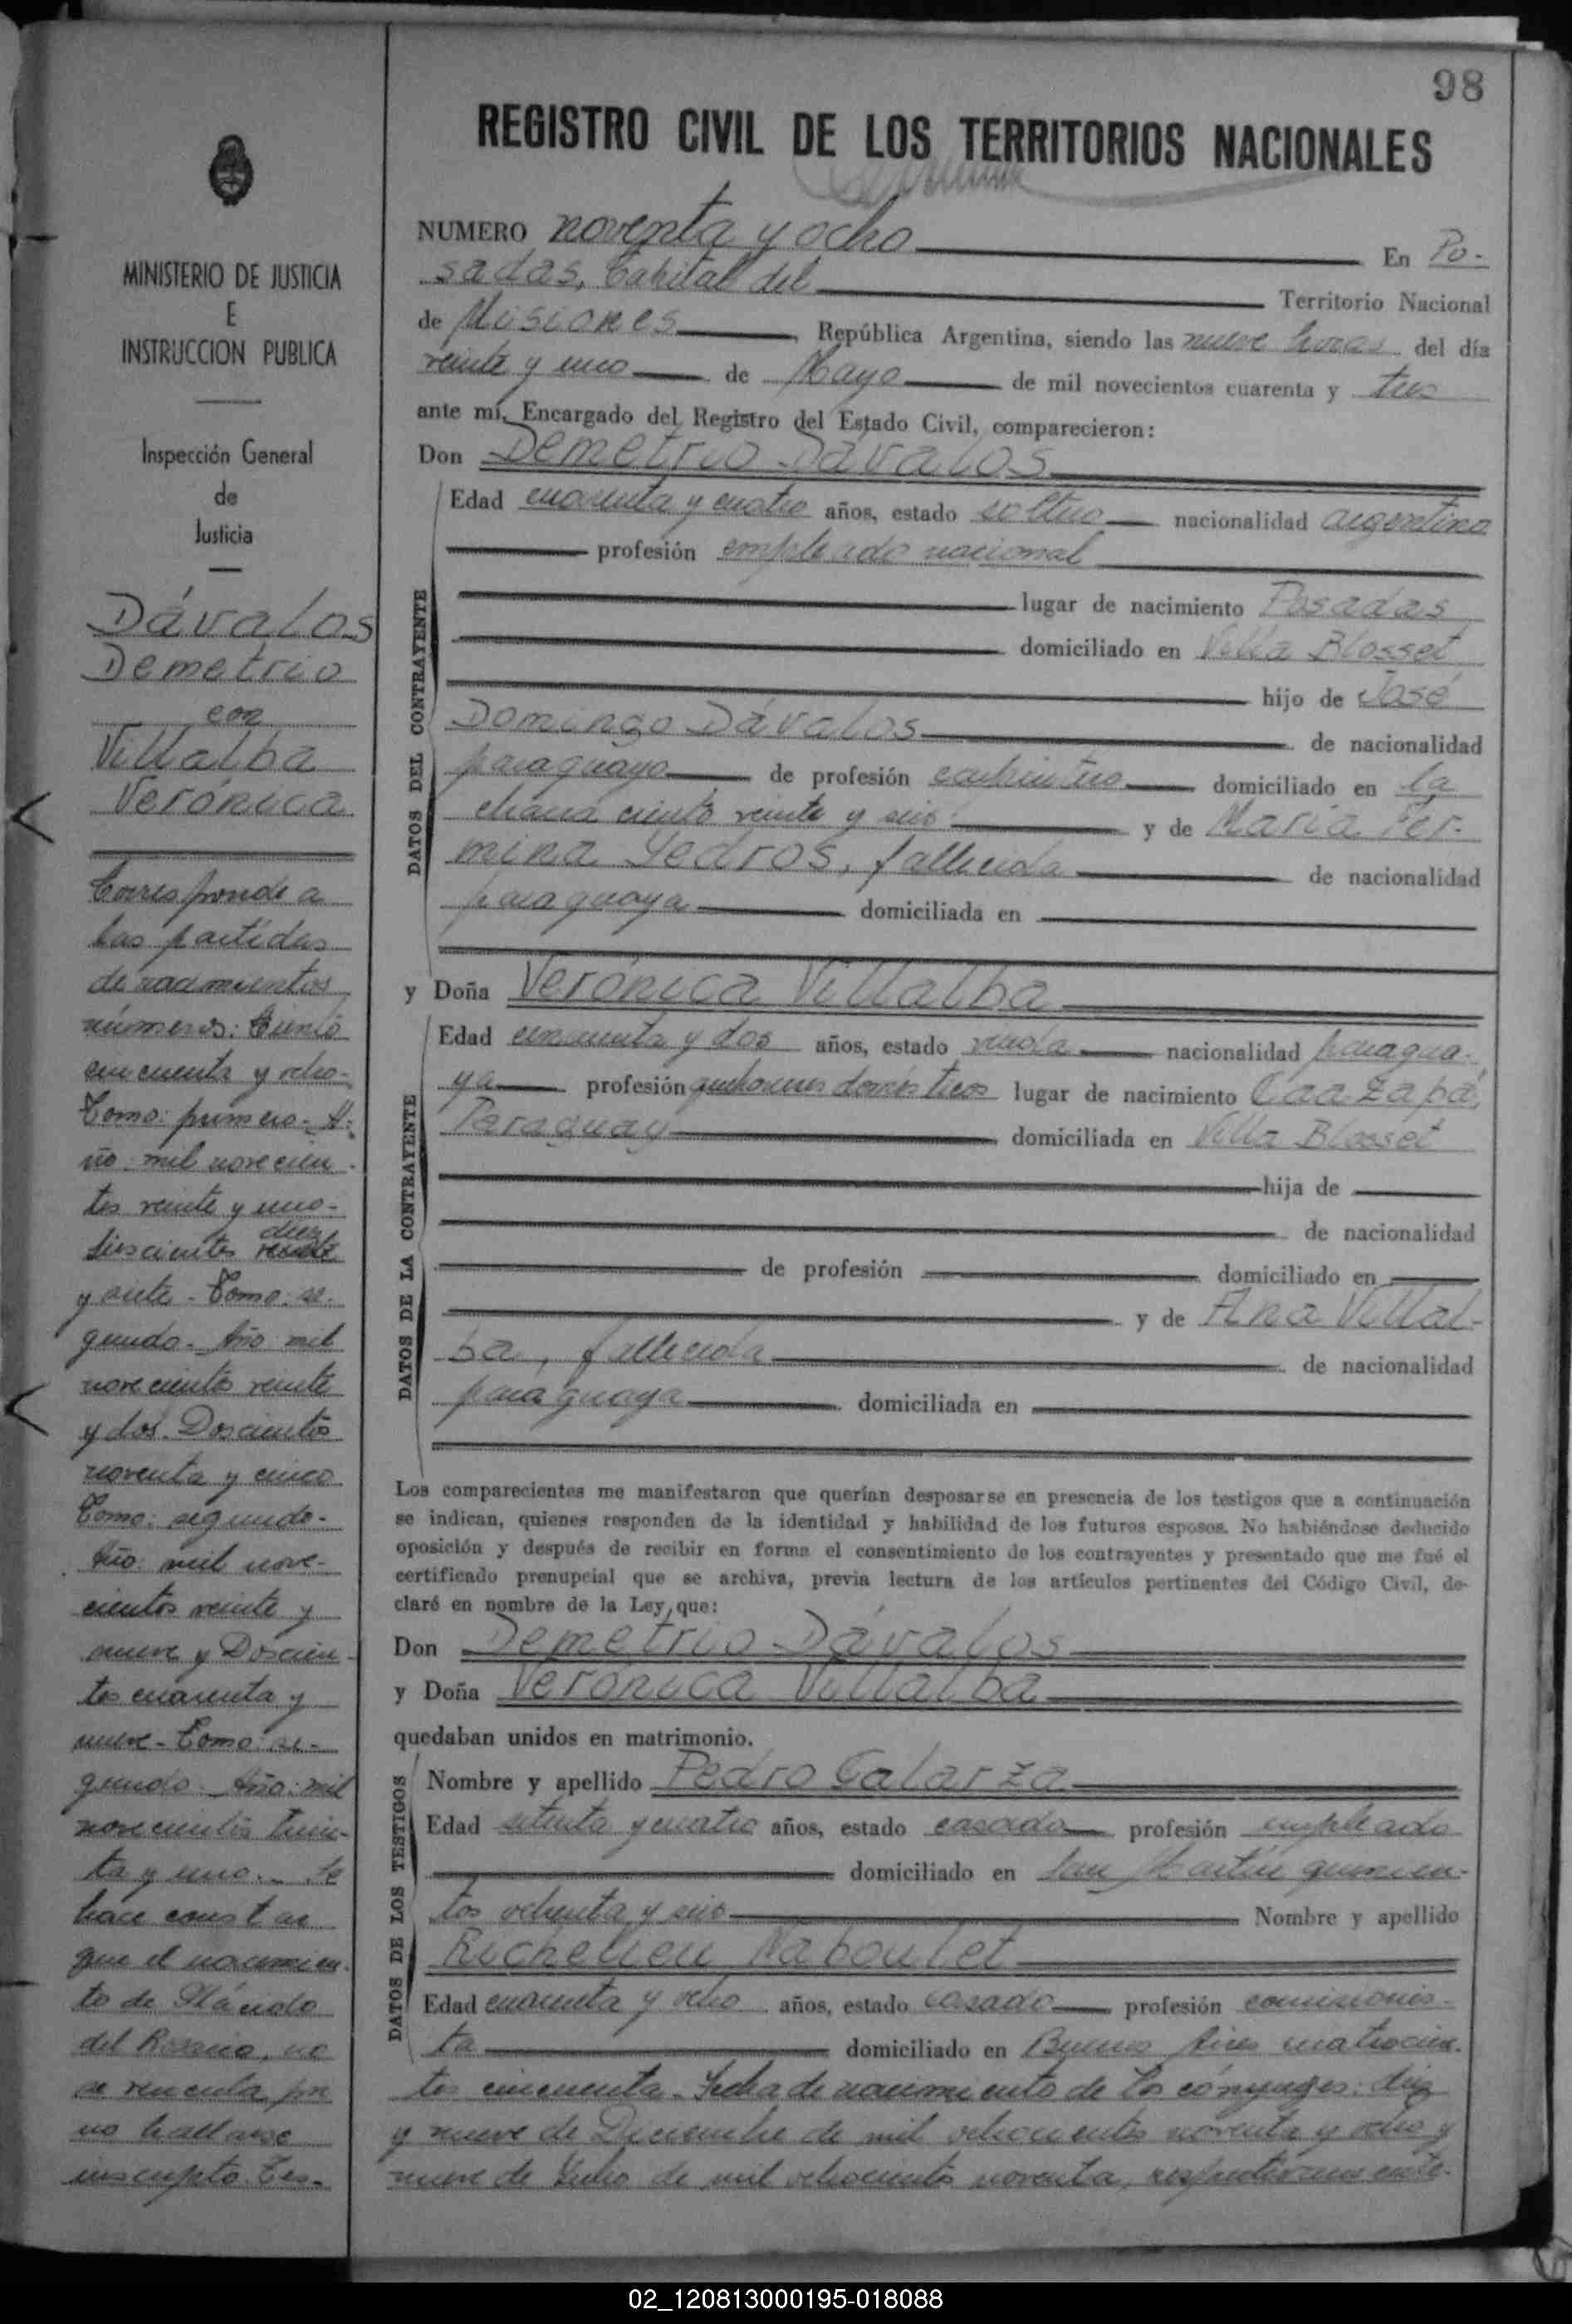 98
REGISTRO CIVIL DE LOS TERRITORIOS NACIONALES
NUMERO noventa y ocho En Po-
sadas, Capital del Territorio Nacional
de Misiones República Argentina, siendo las nueve horas del día
veinte y uno de Mayo de mil novecientos cuarenta y tres
ante mí, Encargado del Registro del Estado Civil, comparecieron:
Don Demetrio Dávalos
Edad cuarenta y cuatro años, estado soltero nacionalidad argentina
profesión empleado nacional
lugar de nacimiento Posadas
domiciliado en Villa Blosset
hijo de José
Domingo Dávalos de nacionalidad
paraguayo de profesión domiciliado en la
chacra ciento veinte y seis y de María Fer-
mina Yedros, fallecida de nacionalidad
paraguaya domiciliada en
DATOS DEL CONTRAYENTE
y Doña Verónica Villalba
Edad cincuenta y dos años, estado viuda nacionalidad paragua-
ya profesión quehaceres domésticos lugar de nacimiento Caazapá,
Paraguay domiciliada en Villa Blosset
hija de
de nacionalidad
de profesión domiciliado en
y de Ana Villal-
ba, fallecida de nacionalidad
paraguaya domiciliada en
DATOS DE LA CONTRAYENTE
Los comparecientes me manifestaron que querían desposarse en presencia de los testigos que a continuación
se indican, quienes responden de la identidad y habilidad de los futuros esposos. No habiéndose deducido
oposición y después de recibir en forma el consentimiento de los contrayentes y presentado que me fué el
certificado prenupcial que se archiva, previa lectura de los artículos pertinentes del Código Civil, de-
claré en nombre de la Ley, que:
Don Demetrio Dávalos
y Doña Verónica Villalba
quedaban unidos en matrimonio.
Nombre y apellido Pedro Galarza
Edad setenta y cuatro años, estado casado profesión empleado
domiciliado en San Martín quinien-
tos ochenta y seis Nombre y apellido
Richelieu Naboulet
Edad cuarenta y ocho años, estado casado profesión comisionis-
ta domiciliado en Buenos Aires cuatrocien-
tos cincuenta. Fecha de nacimiento de los cónyuges: diez
y nueve de Diciembre de mil ochocientos noventa y ocho y
nueve de Julio de mil ochocientos noventa, respectivamente.
DATOS DE LOS TESTIGOS
MINISTERIO DE JUSTICIA
E
INSTRUCCION PUBLICA
Inspección General
de
Justicia
Dávalos
Demetrio
con
Villalba
Verónica
Corresponde a
las partidas
de nacimientos
números: Ciento
cincuenta y ocho-
Tomo: primero- A-
ño: mil novecien-
tos veinte y uno-
diez
y siete - Tomo: se-
gundo. Año mil
novecientos veinte
y dos. Doscientos
noventa y cinco
Tomo: segundo-
Año: mil nove-
cientos veinte y
nueve y Doscien-
tos cuarenta y
nueve- Tomo: se-
gundo. Año: mil
novecientos trein-
ta y uno. Se
hace constar
que el nacimien-
to de Plácido
del Rosario, no
se vincula por
no hallarse
inscripto. Tes-
02_120813000195-018088